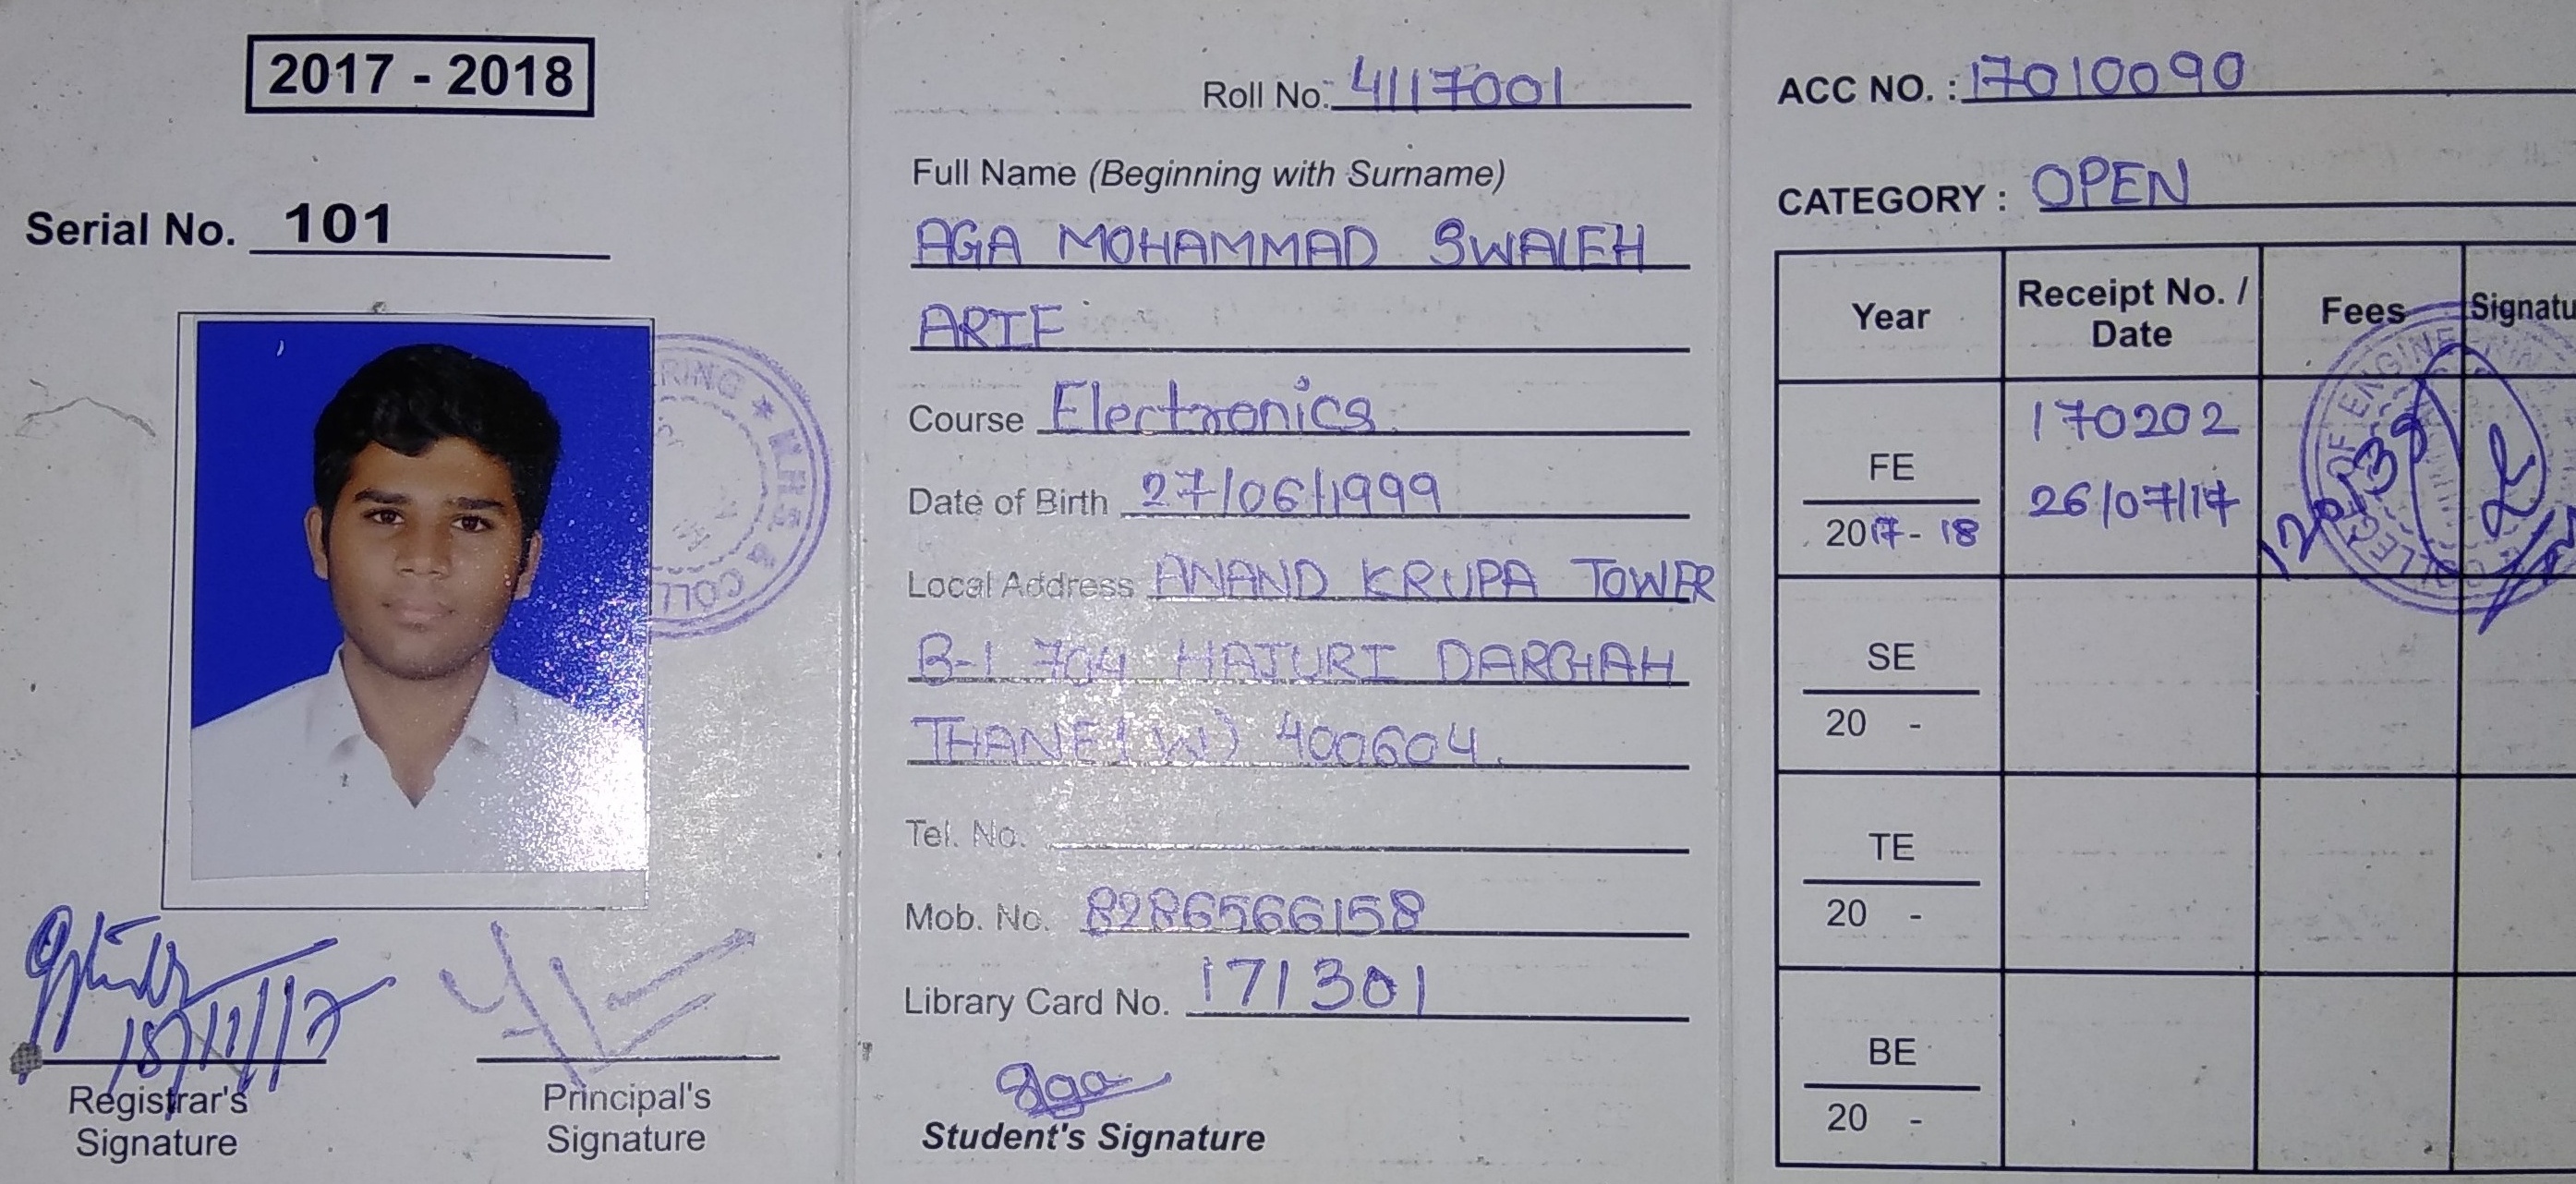 2017 - 2018
Serial No. 101
RING ★ M.H.S. & COLL
Registrar's
Signature
Principal's
Signature
Roll No: 4117001
Full Name (Beginning with Surname)
AGA MOHAMMAD SWALEH
ARIF
Course Electronics
Date of Birth 27/06/1999
Local Address ANAND KRUPA TOWER
B-1 704 HAJURI DARGAH
THANE (W) 400604.
Tel. No.
Mob. No. 8286566158
Library Card No. 171301
Aga
Student's Signature
ACC NO. : 17010090
CATEGORY : OPEN
Year Receipt No. / Date Fees Signatu
FE 2017-18 170202 26/07/17
SE 20 -
TE 20 -
BE 20 -